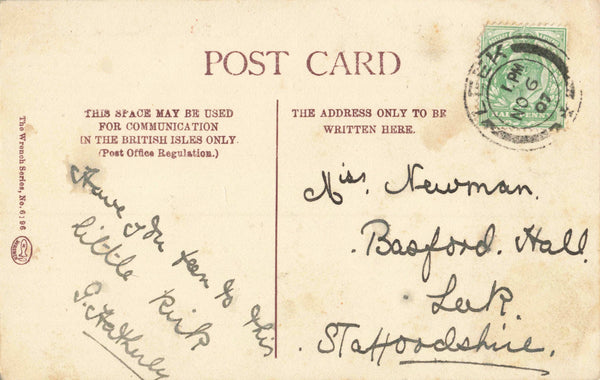 POST CARD
THIS SPACE MAY BE USED
FOR COMMUNICATION
IN THE BRITISH ISLES ONLY
(Post Office Regulation.)
THE ADDRESS ONLY TO BE
WRITTEN HERE.
LEEK
1 PM
NO 6
07
HALFPENNY
The Wrench Series, No. 6196
Have you been to this
little Kirk
G. Hatherley
Miss. Newman.
Basford. Hall.
Leek.
Staffordshire.